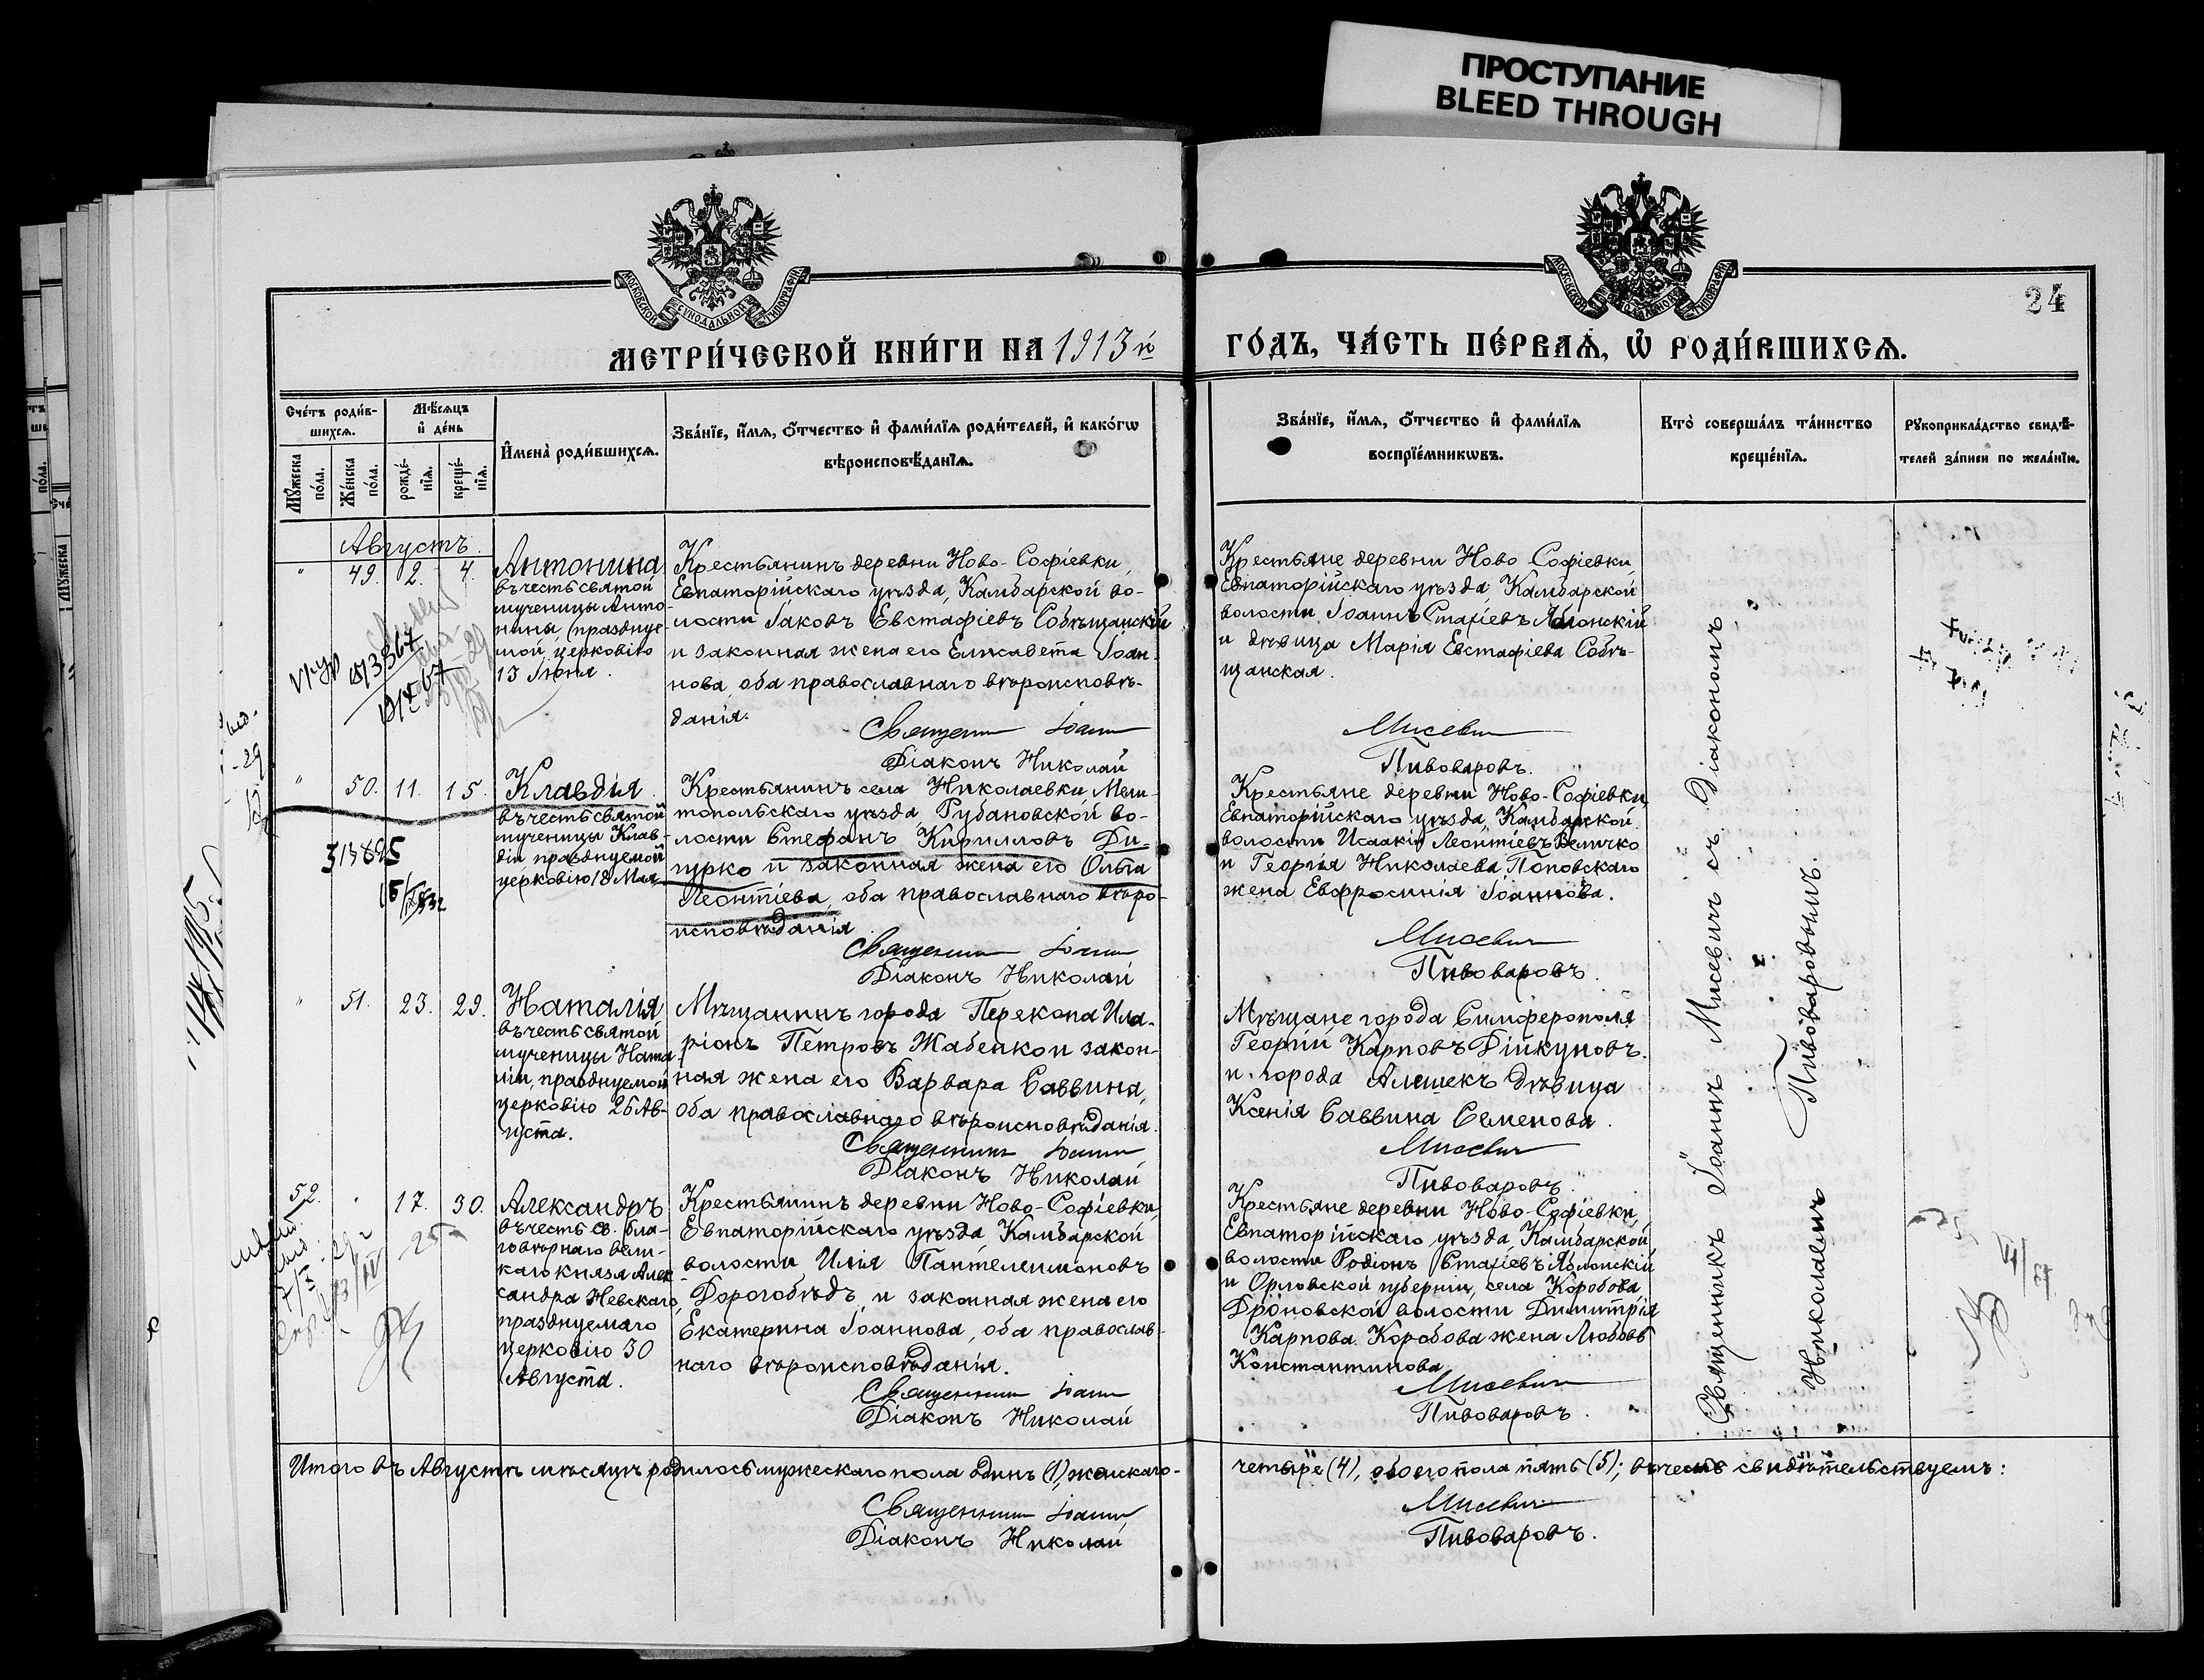 ПРОСТУПАНИЕ
BLEED THROUGH
МОСКОВСКОЙ СѴНОДАЛЬНОЙ ТИПОГРАФІИ
МОСКОВСКОЙ СѴНОДАЛЬНОЙ ТИПОГРАФІИ
24
МЕТРИ́ЧЕСКОЙ КНИ́ГИ НА 1913й
ГО́ДЪ, ЧА́СТЬ ПЕ́РВАѦ, Ѡ РОДИ́ВШИХСѦ.
Сче́тъ роди́в-
шихсѧ.
Мѣ́сѧцъ
и҆ де́нь
Мꙋ́жеска
по́ла.
Же́нска
по́ла.
рожде́-
нїѧ.
креще́-
нїѧ.
И҆мена̀ роди́вшихсѧ.
Зва́нїе, и҆́мѧ, ѻ҆́тчество и҆ фами́лїѧ роди́телей, и҆ како́гѡ
вѣроисповѣ́данїѧ.
Зва́нїе, и҆́мѧ, ѻ҆́тчество и҆ фами́лїѧ
воспрїе́мникѡвъ.
Кто̀ соверша́лъ та́инство
креще́нїѧ.
Рꙋкоприкла́дство свидѣ́-
телей за́писи по жела́нїю.
Августъ.
" 49. 2. 4.
Антонина
въ честь святой
мученицы Анто-
нины, празднуе-
мой церковію
13 Іюня.
Крестьянинъ деревни Ново-Софіевки,
Евпаторійскаго уѣзда, Камбарской во-
лости Іаковъ Евстафіевъ Собѣщанскій
и законная жена его Елисавета Іоан-
нова, оба православнаго вѣроисповѣ-
данія.
Священникъ Іоаннъ
Діаконъ Николай
Крестьяне деревни Ново-Софіевки,
Евпаторійскаго уѣзда, Камбарской
волости Іоаннъ Стахіевъ Яблонскій
и дѣвица Марія Евстафіева Собѣ-
щанская.
Мисевичъ
Пивоваровъ.
" 50. 11. 15.
Клавдія
въ честь святой
мученицы Клав-
діи, празднуемой
церковію 18 Мая
313895
Крестьянинъ села Николаевки, Мели-
топольскаго уѣзда, Рубановской во-
лости Стефанъ Кирилловъ Ди-
гурко и законная жена его Ольга
Леонтіева, оба православнаго вѣро-
исповѣданія.
Священникъ Іоаннъ
Діаконъ Николай
Крестьяне деревни Ново-Софіевки,
Евпаторійскаго уѣзда, Камбарской
волости Исаакій Леонтіевъ Величко
и Георгія Николаева Поповскаго
жена Евфросинія Іоаннова.
Мисевичъ
Пивоваровъ.
" 51. 23. 29.
Наталія
въ честь святой
мученицы Ната-
ліи, празднуемой
церковію 26 Ав-
густа.
Мѣщанинъ города Перекопа Ила-
ріонъ Петровъ Жабенко и закон-
ная жена его Варвара Саввина,
оба православнаго вѣроисповѣданія.
Священникъ Іоаннъ
Діаконъ Николай
Мѣщане города Симферополя
Георгій Карповъ Дикуновъ.
и города Алешекъ дѣвица
Ксенія Саввина Семенова.
Мисевичъ
Пивоваровъ.
52. " 17. 30.
Александръ
въ честь св. бла-
говѣрнаго вели-
каго князя Алек-
сандра Невскаго,
празднуемаго
церковію 30
Августа.
Крестьянинъ деревни Ново-Софіевки,
Евпаторійскаго уѣзда, Камбарской
волости Илія Пантелеимоновъ
Дорогобѣдъ и законная жена его
Екатерина Іоаннова, оба православ-
наго вѣроисповѣданія.
Священникъ Іоаннъ
Діаконъ Николай
Крестьяне деревни Ново-Софіевки,
Евпаторійскаго уѣзда, Камбарской
волости Родіонъ Стахіевъ Яблонскій
и Орловской губерніи, села Коробова
Дроновской волости Димитрія
Карпова Коробова жена Любовь
Константинова.
Мисевичъ
Пивоваровъ.
Священникъ Іоаннъ Мисевичъ съ Діакономъ
Николаемъ Пивоваровымъ.
Итого въ Августѣ мѣсяцѣ родилось мужескаго пола одинъ (1), женскаго-
четыре (4), обоего пола пять (5); въ чемъ свидѣтельствуемъ:
Священникъ Іоаннъ
Діаконъ Николай
Мисевичъ
Пивоваровъ.